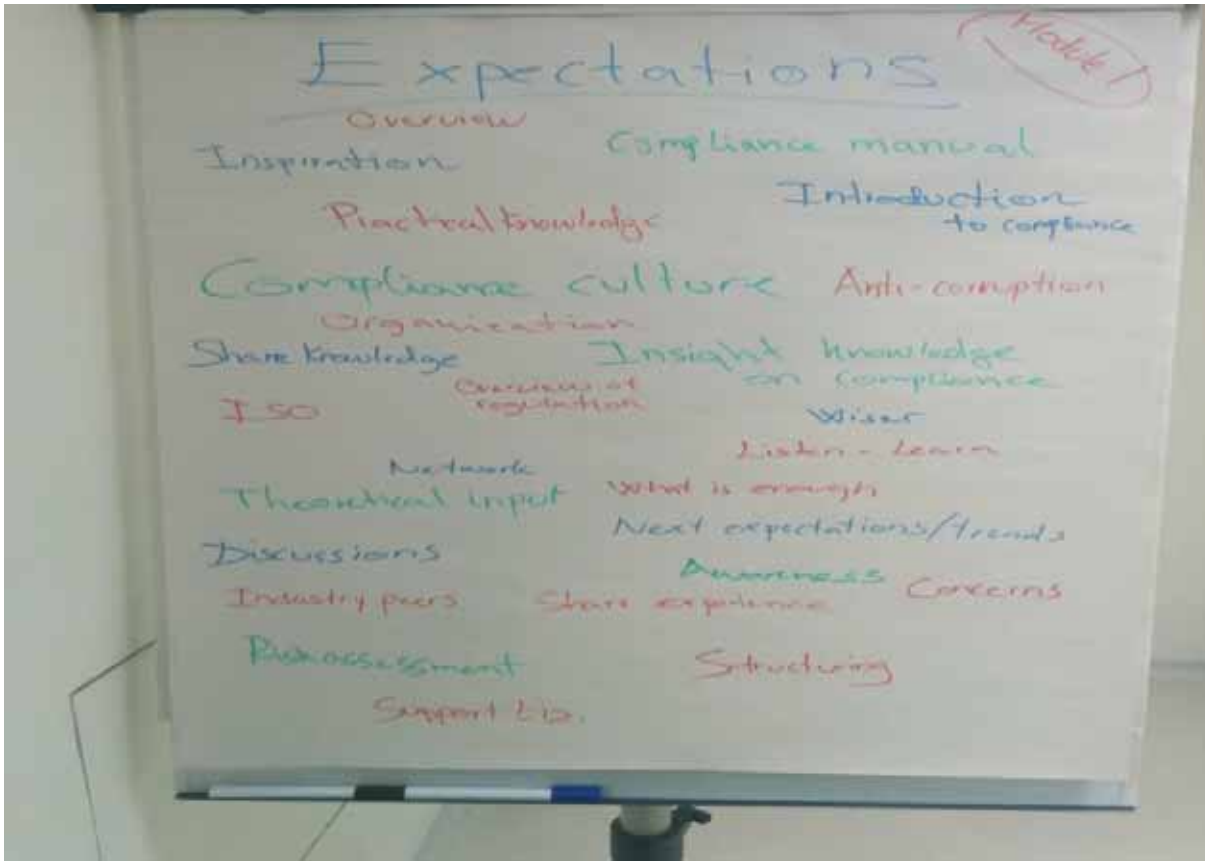 Expectations
Module 1
Overview
Compliance manual
Inspiration
Introduction
to compliance
Practical knowledge
Compliance culture
Anti-corruption
Organization
Share knowledge
Insight knowledge
on compliance
Overview of
regulation
ISO
Wiser
Listen - Learn
Network
Theoretical input
What is enough
Next expectations/trends
Discussions
Awareness
Concerns
Industry peers
Share experience
Risk assessment
Structuring
Support